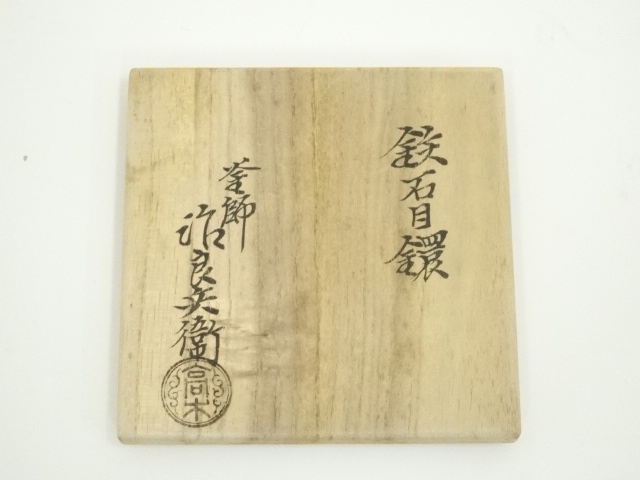 鉄石目鐶
釜師
治良兵衛
高木